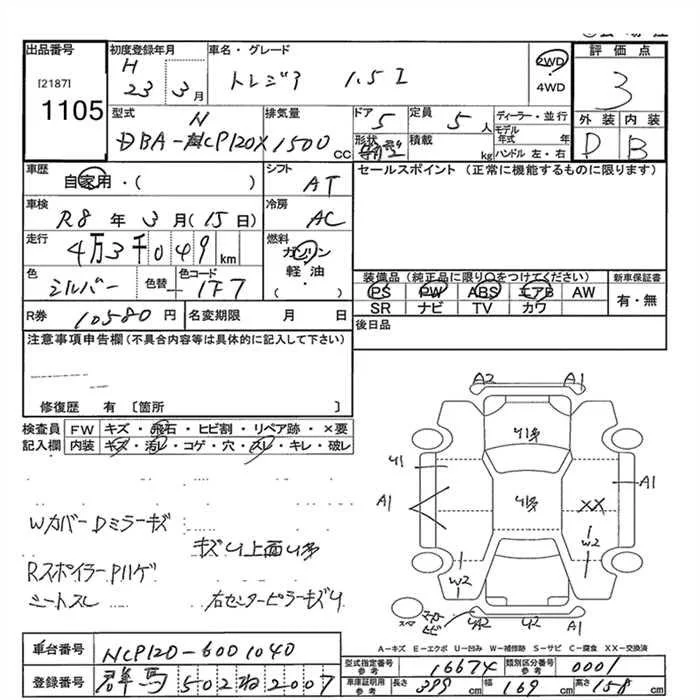 出品番号
[2187]
1105
初度登録年月
H
23 3月
車名・グレード
トレジア 1.5 I
2WD
4WD
評価点
3
外装 内装
D B
型式
DBA-NCP120X
排気量
1500 CC
ドア
5
形状
定員
5人
積載
kg
ディーラー・並行
モデル年式 年
ハンドル 左・右
車歴
自家用・( )
シフト
AT
セールスポイント (正常に機能するものに限ります)
車検
R8年3月(15日)
冷房
AC
走行
4万3千049km
燃料
ガソリン
軽油
( )
色
シルバー
色替
色コード
1F7
装備品(純正品に限り○をつけてください)
PS PW ABS エアB AW
SR ナビ TV カワ
新車保証書
有・無
R券
10580円
名変期限 月 日
後日品
注意事項申告欄(不具合内容等は具体的に記入して下さい)
修復歴 有〔箇所 〕
検査員記入欄
FW キズ・飛石・ヒビ割・リペア跡・×要
内装 キズ・汚レ・コゲ・穴・スレ・キレ・破レ
A2 A1
U多
U1
A1
U多
A1
XX
W2
W2
スペア
U2
A1
WカバーDミラーキズ
キズU上面U多
RスポイラーPハゲ
シートスレ
右センターピラーキズU
A-キズ E-エクボ U-凹み W-補修跡 S-サビ C-腐食 XX-交換済
車台番号
NCP120-6001040
登録番号
群馬 502 ね 2007
型式指定番号 参考
16674
類別区分番号 参考
0001
車庫証明用 参考
長さ 399cm
幅 169cm
高さ 158cm